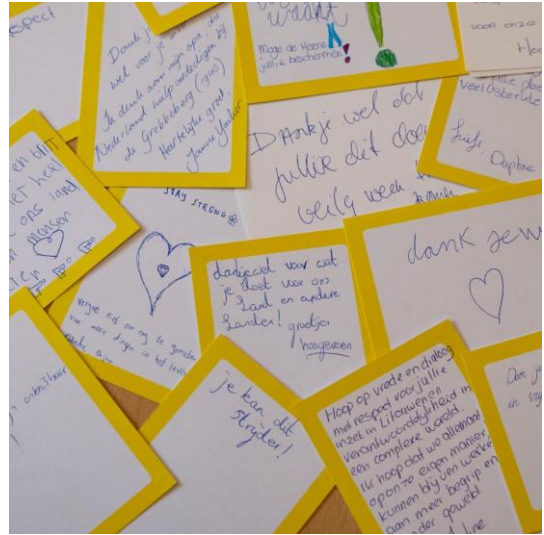 respect
Dank je
wel voor je
Ik denk aan mijn opa, die
Nederland hielp verdedigen bij
de Grebbeberg (1940)
Hartelijke groet,
waakt
Moge de Heere
jullie beschermen!
voor onze
veel
Liefs, Daphne
DANKje wel dat
jullie dit doen
veilig
en
ons land
mensen
STAY STRONG
vergeet niet om nog te genieten
van mooie dingen in het leven
dankjewel voor wat
je doet voor ons
Land en andere
Landen! groetjes
hoogeveen
dank jew
onmisbaar
je kan dit
strijder!
Hoop op vrede en dialoog
met respect voor jullie
inzet in Litouwen en
verantwoordelijkheid in
een complexe wereld.
Ik hoop dat we allemaal
op onze eigen manier
kunnen blijven werken
aan meer begrip en
geweld.
en